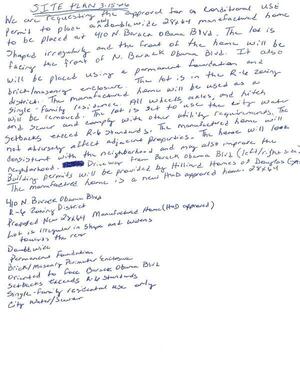 SITE PLAN 3-15-
We are requesting the approval for a conditional use
permit to place a doublewide 28x64 manufactured home
to be placed at 410 N. Barack Obama Blvd. The lot is
shaped irregularly and the front of the home will be
facing the front of N. Barack Obama Blvd. It also
will be placed using a permanent foundation and
brick/masonary enclosure. The lot is in the R-6 zoning
district. The manufactured home will be used as a
single-family residence. All wheels, axles, and hitch
will be removed. The lot is set to use the city water
and sewer and comply with other utility requirements. The
setbacks exceed R-6 standards. The manufactured home will
not adversly affect adjacent properties. The home will look
consistent with the neighborhood and may also improve the
neighborhood. Driveway from Barack Obama Blvd (left/right side)
Building permits will be provided by Hilliard Homes of Douglas GA
The manufactured home is a new HUD approved home. 28x64
410 N. Barack Obama Blvd
R-6 Zoning District
Proposed New 28x64 Manufactured Home (HUD approved)
Lot is Irregular in Shape and widens
towards the rear
Doublewide
Permanent Foundation
Brick/Masonry Perimeter Enclosure
Oriented to face Barack Obama Blvd
Setbacks exceeds R-6 standards
Single-family residential use only
City Water/Sewer